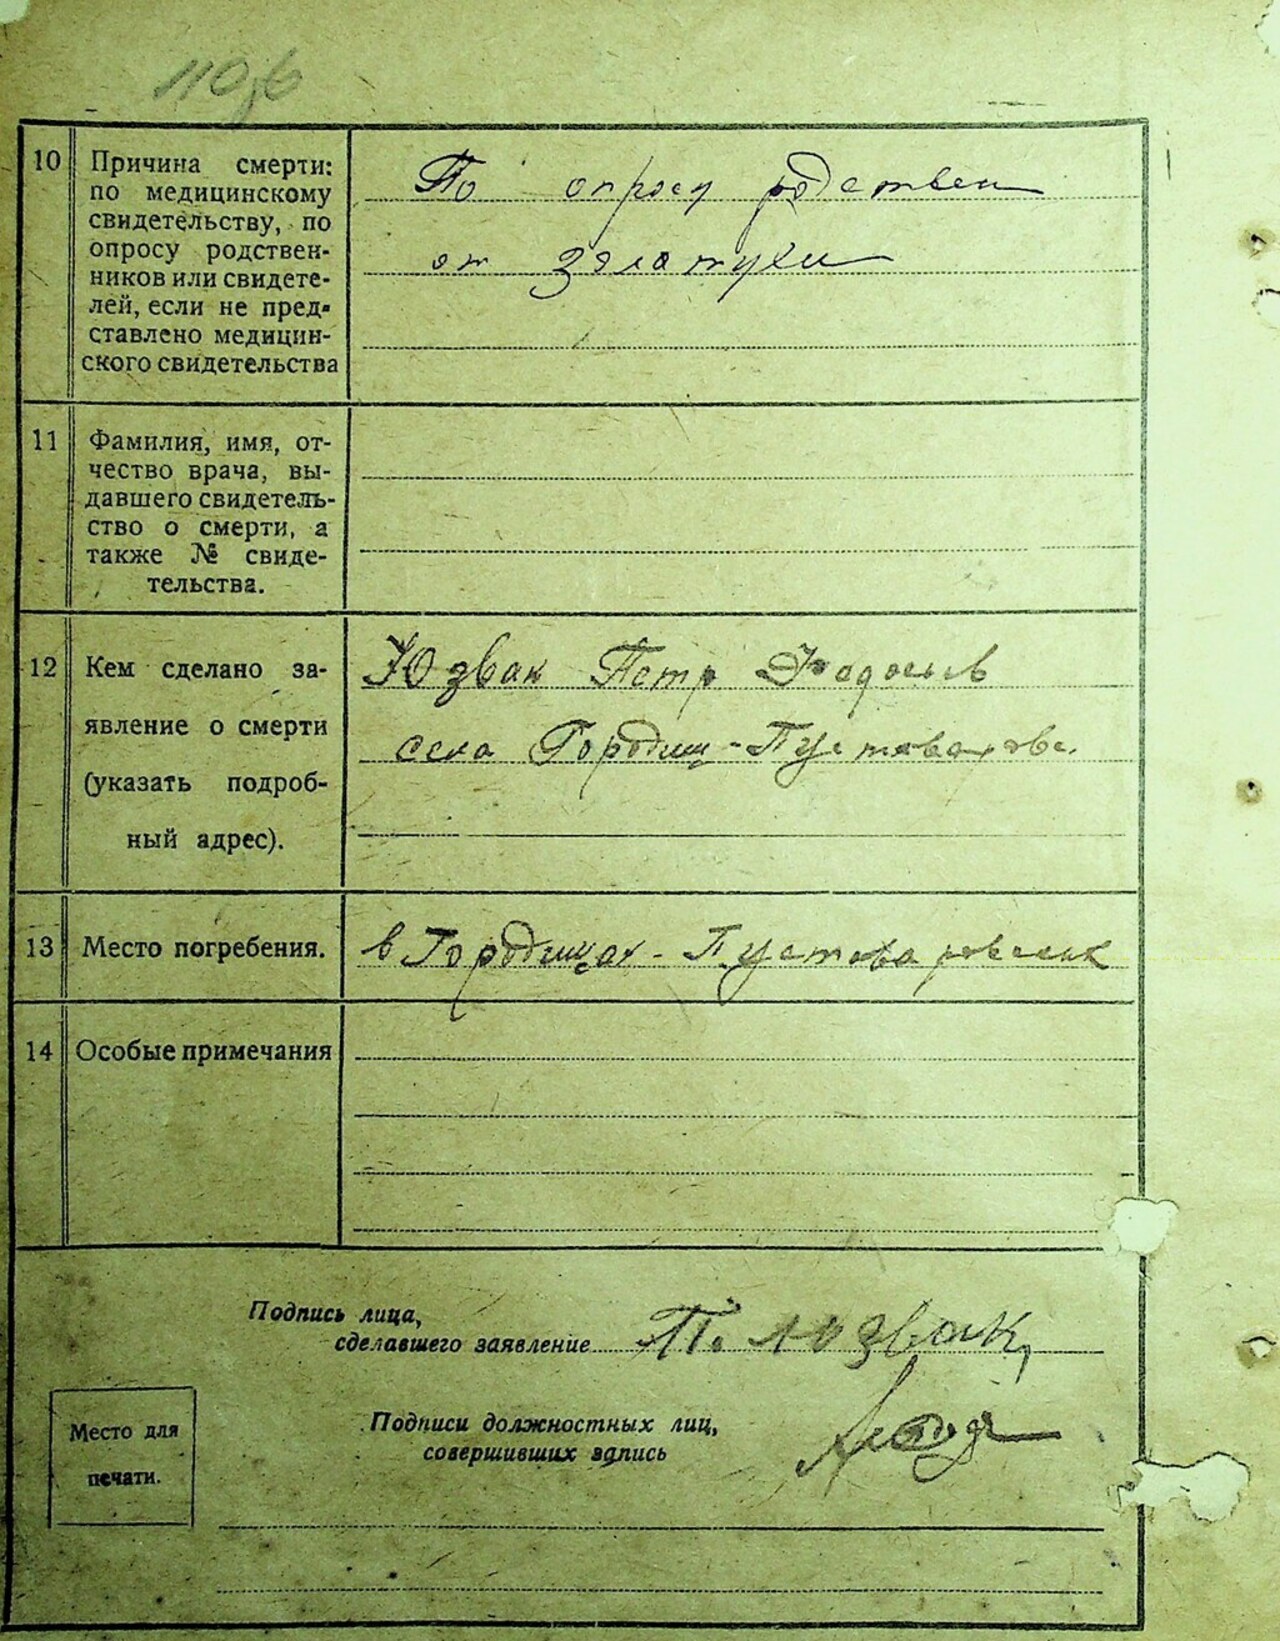 110об
10 Причина смерти:
по медицинскому
свидетельству, по
опросу родствен-
ников или свидете-
лей, если не пред-
ставлено медицин-
ского свидетельства
По опросу родствен
от золотухи
11 Фамилия, имя, от-
чество врача, вы-
давшего свидетель-
ство о смерти, а
также № свиде-
тельства.
12 Кем сделано за-
явление о смерти
(указать подроб-
ный адрес).
Юзвак Петр
села Городищ-
13 Место погребения.
в Городищах-
14 Особые примечания
Подпись лица,
сделавшего заявление П. Юзвак
Подписи должностных лиц,
совершивших запись
Место для
печати.